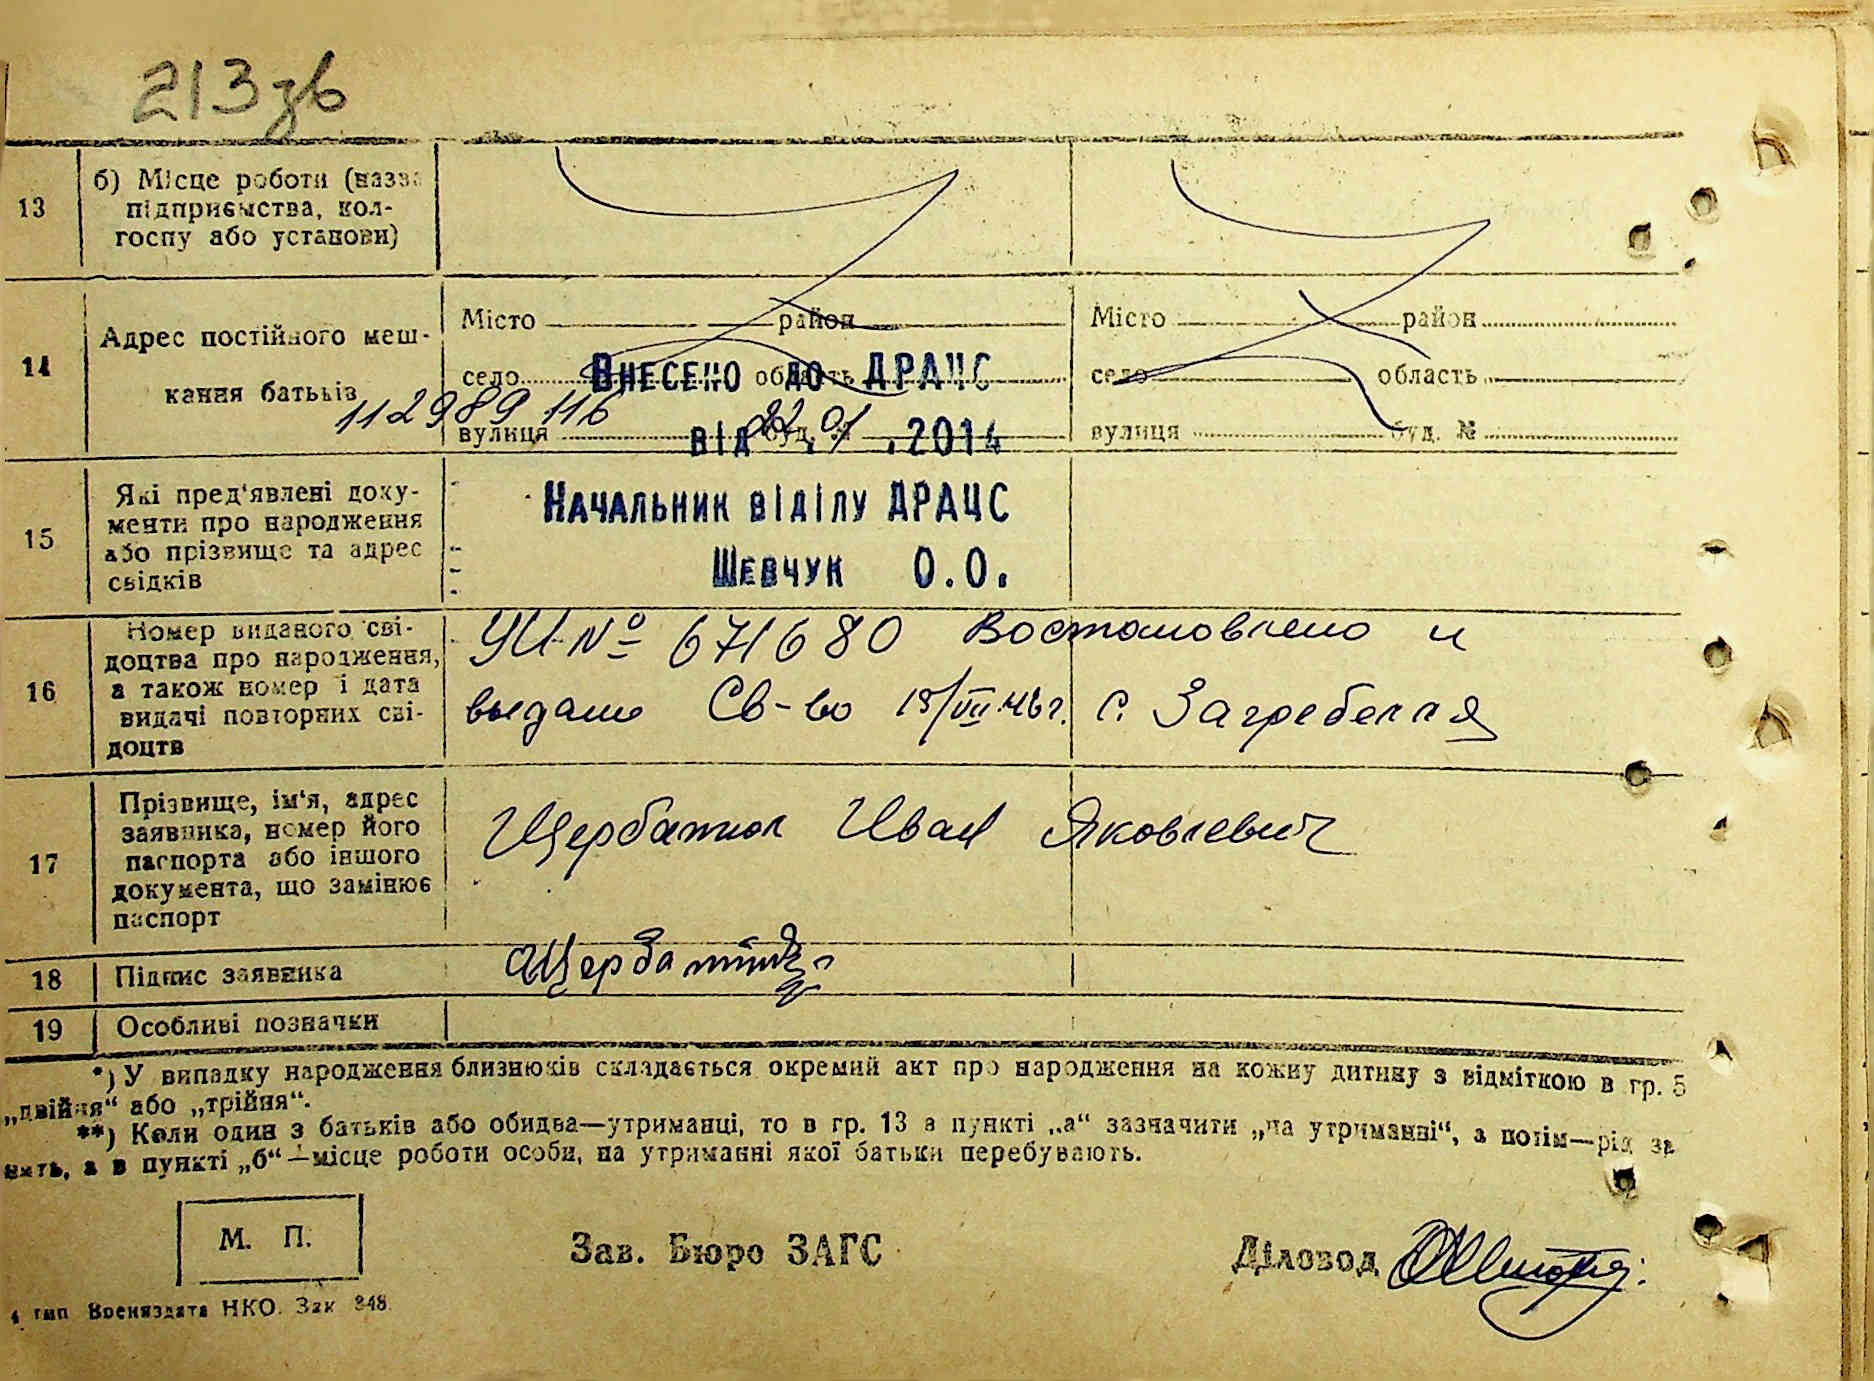 213 зв
13
б) Місце роботи (назва
підприємства, кол-
госпу або установи)
14
Адрес постійного меш-
кання батьків
Місто район
село область
вулиця буд. №
Місто район
село область
вулиця буд. №
Внесено до ДРАЦС
112989116
від 22.01.2014
Начальник відділу ДРАЦС
Шевчук О.О.
15
Які пред'явлені доку-
менти про народження
або прізвище та адрес
свідків
16
Номер виданого сві-
доцтва про народження,
а також номер і дата
видачі повторних сві-
доцтв
УИ-№ 671680 Востановлено и
выдано Св-во 18/VII 46 г. с. Загребелля
17
Прізвище, ім'я, адрес
заявника, номер його
паспорта або іншого
документа, що замінює
паспорт
Щербатюк Иван Яковлевич
18
Підпис заявника
19
Особливі позначки
*) У випадку народження близнюків складається окремий акт про народження на кожну дитину з відміткою в гр. 5
„двійня“ або „трійня“.
**) Коли один з батьків або обидва—утриманці, то в гр. 13 в пункті „а“ зазначити „на утриманні“, а потім—рід за
нять, а в пункті „б“—місце роботи особи, на утриманні якої батьки перебувають.
М. П.
Зав. Бюро ЗАГС
Діловод
тип Воениздата НКО. Зак 348.